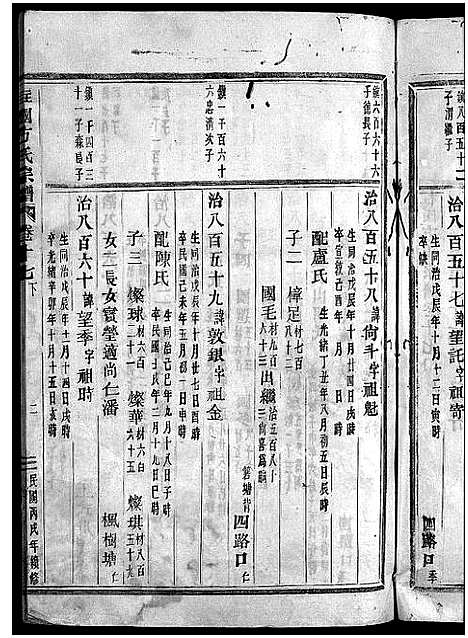 鎮八百五十二
子渭繼子
治八百五十七諱望託字祖寄
生同治戊辰年十月十二日寅時
卒缺
四路口季
鎮六百六十六
子德長子
治八百五十八諱尙斗字祖魁
生同治戊辰年十月廿四日戌時
卒宣統己酉年 月 日 時
配盧氏
生光緒丁丑年八月初五日辰時
子二
樟足材七百八十二
國毛材九百八十三
出繼治五百八十三尙喜爲嗣
舊塘背四路口仁
鎮一千百六十
六忠濱次子
治八百五十九諱敦銀字祖金
生同治戊辰年十月廿七日酉時
卒民國己未年五月初一日申時
配陳氏
生同治己巳年九月十八日子時
卒民國丙戌年二月十九日巳時
子三
燦球材六百六十一
燦華材六百六十五
燦琪材八百五十九
女二長女寰瑩適尚仁潘
楓樹塘仁
鎮一千四百三
十一子森長子
治八百六十諱望季字祖時
生同治戊辰年十一月十四日戌時
卒光緒辛卯年十月十五日辰時
方氏宗譜
卷二十七下
二
民國丙戌年續修